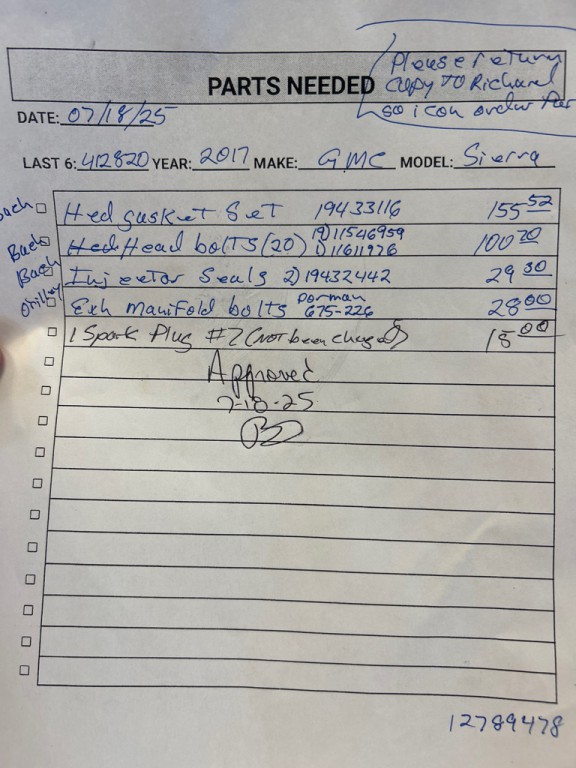 Please return
Copy TO Richard
so i can order Par
PARTS NEEDED
DATE: 07/18/25
LAST 6: 412820 YEAR: 2017 MAKE: GMC MODEL: Sierra
Bach Hed gasket Set 19433116 155 52
Bach Hed Head bolts (20) 19)11546959 1)11611976 100 20
Bach Injector Seals 2) 19432442 29 30
Exh Manifold bolts Dorman 675-226 28 00
1 Spark Plug #7 (not been changed) 18 00
Approved
7-18-25
12789478